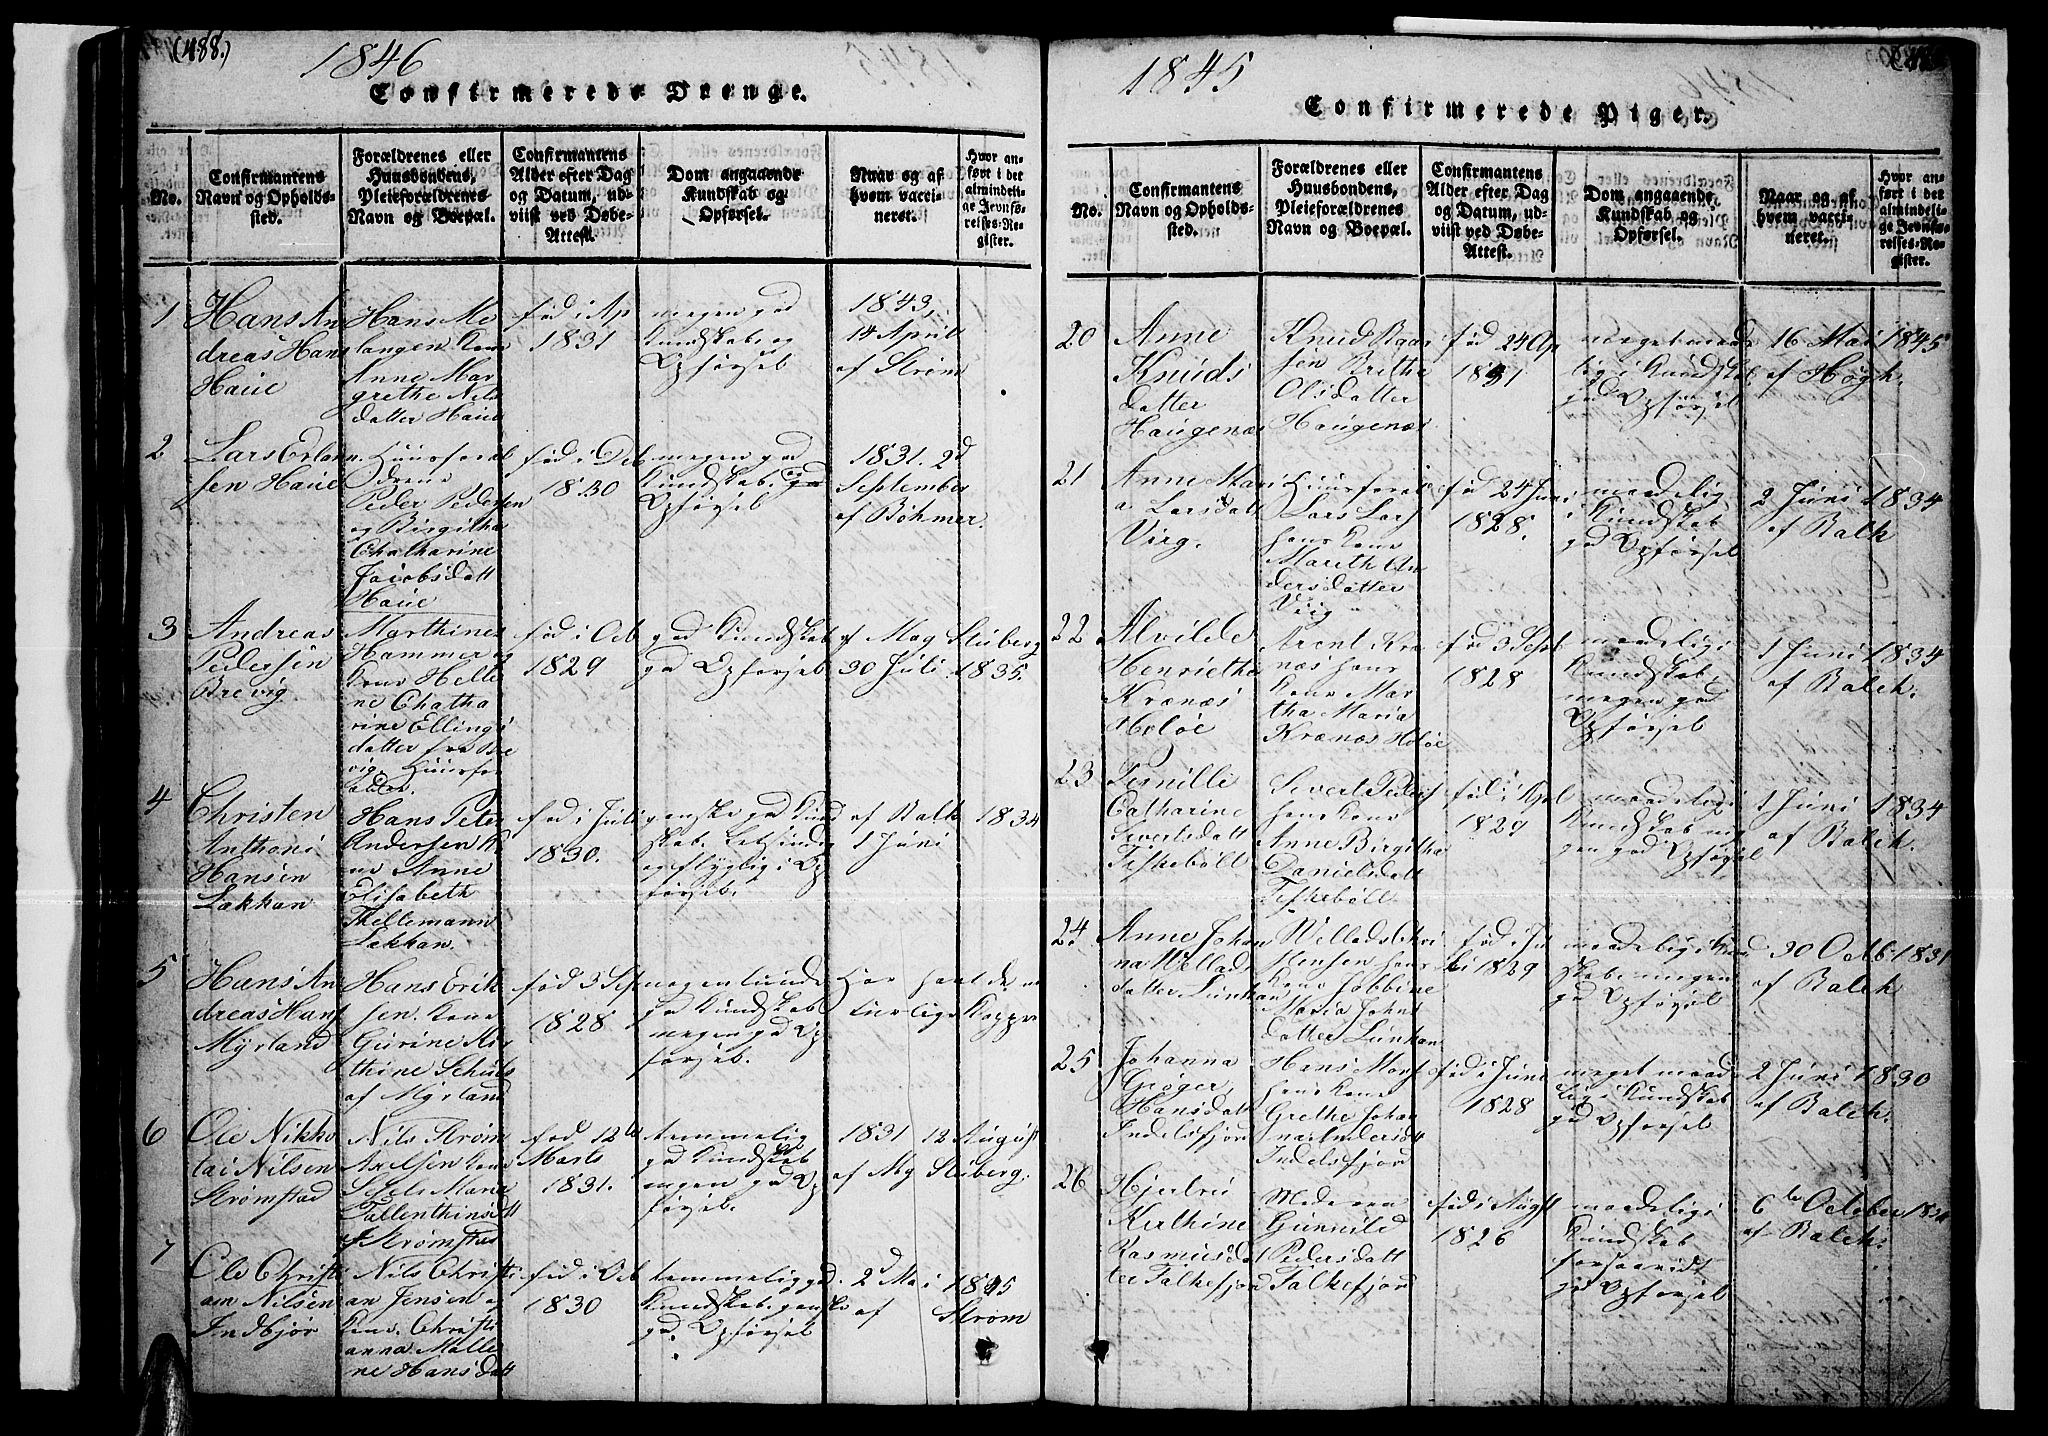 (188.)
1846
Confirmerede Drenge.
No.
Confirmantens
Navn og Opholds-
sted.
Forældrenes eller
Huusbondens,
Pleieforældrenes
Navn og Boepæl.
Confirmantens
Alder efter Dag
og Datum, ud-
viist ved Døbe-
Attest.
Dom angaaende
Kundskab og
Opførsel.
Naar og af
hvem vacci-
neret.
Hvor an-
ført i det
almindeli-
ge Jevnfø-
relses-Re-
gister.
1
Hans An
dreas Hans
Haue
Hans Me
langen Kone
Anne Mar
grethe Nils
datter Haue
fød i Ap
1831
megen god
Kundskab og
Opførsel
1843,
14 April
af Strøm
2
Lars Erlan
sen Haue
Huusforæl
drene
Peder Pedersen
og Birgitha
Chatharine
Jacobsdatt
Haue
fød i Deb
1830
megen god
Kundskab. god
Opførsel
1831. 2d
September
af Bøhmer.
3
Andreas
Pedersen
Brevig
Marthines
Hammer og
Kone Helle
ne Chatha
rine Ellings
datter fra Bre
vig. Huusfor
ældre.
fød i Ocb
1829
god Kundskab
god Opførsel
af Mag Stuberg
30 Juli 1835.
4
Christen
Anthoni
Hansen
Lakhan
Hans Peter
Andersen K
one Anne
Elisabeth
Thellemann
Lakhan.
fød i Juli
1830.
ganske god Kund
skab. Letsindig
og flygtig i Op
førsel.
af Balk 1834
1 Juni
5
Hans An
dreas Hans
Myrland
Hans Erik
sen. Kone
Gurine Mar
thine Schuls
af Myrland
fød 3 Sep
1828
nogenlunde
god Kundskab
megen god Op
førsel.
Har havt de na
turlige Kopper
6
Ole Nikko
lai Nilsen
Strømstad
Nils Strøm
Axelsen Kone
Maria
Fallenthinsdt
af Strømstad
fød 12te
Marts
1831.
temmelig
god Kundskab
megen god Op
førsel.
1831 12 August
af Mg Stuberg.
7
Ole Christi
an Nilsen
Indhjør
Nils Christi
an Jensen og
Kone. Christi
anna Malle
ne Hansdatt
fød i Ocb
1830
temmelig god
Kundskab. ganske
god. Opførsel
2d Mai 1845
af Strøm
1845
Confirmerede Piger.
No.
Confirmantens
Navn og Opholds-
sted.
Forældrenes eller
Huusbondens,
Pleieforældrenes
Navn og Boepæl.
Confirmantens
Alder efter Dag
og Datum, ud-
viist ved Døbe-
Attest.
Dom angaaende
Kundskab og
Opførsel.
Naar og af
hvem vacci-
neret.
Hvor an-
ført i det
almindeli-
ge Jevnfø-
relses-Re-
gister.
20
Anne
Knuds
datter
Haugenæs
Knud Baar
sen Brithe
Olsdatter
Haugenæs
fød 24 Ap
1831
meget maade
lig i Kundskab
god Opførsel
16 Mai 1845
af Høgh.
21
Anne Mari
a Larsdatt
Virg.
Huusforæl
Lars Lars
hans Kone
Marith An
dersdatter
Virg
fød 24 Juni
1828.
maadelig
i Kundskab
god Opførsel
2 Juni 1834
af Balk
22
Alvilde
Henrietha
Krænæs
Holøe
Arent Kræ
næs hans
Kone Mar
tha Maria
Krænæs Holøe
fød 3 Sepb
1828
maadelig i
Kundskab.
megen god
Opførsel
1 Juni 1834
af Balck.
23
Pernille
Catharine
Sivertsdatt
Fiskebøll
Sivert Peders
hans Kone
Anne Birgitha
Danielsdatt
Fiskebøll
fød i Apl
1829
maadelig i
Kundskab me
gen god Opførsel
1 Juni 1834
af Balck.
24
Anne Johan
na Wellads
datter Lunkan
Wellads Chri
stensen hans
Kone Jobbine
Maria Johns
datter Lunkan
fød i Ju
li 1829
maadelig i Kund
skab. megen
god Opførsel
30 Octb. 1831
af Balck
25
Johanna
Grøger
Hansdatt
Indelsfjord
Hans Mons
hans Kone
Grethe Johan
na Andersdt
Indelsfjord
fød i Juni
1828
meget maade
lig i Kundskab
god Opførsel
2 Juni 1830
af Balck.
26
Hjertru
Kirthine
Rasmusdat
ter Falkefjord
Moderen
Gunnild
Pedersdatt
Falkefjord
fød i Augst
1826
maadelig i
Kundskab
forsaavidt
god Opførsel
6te October 1834
af Balck.